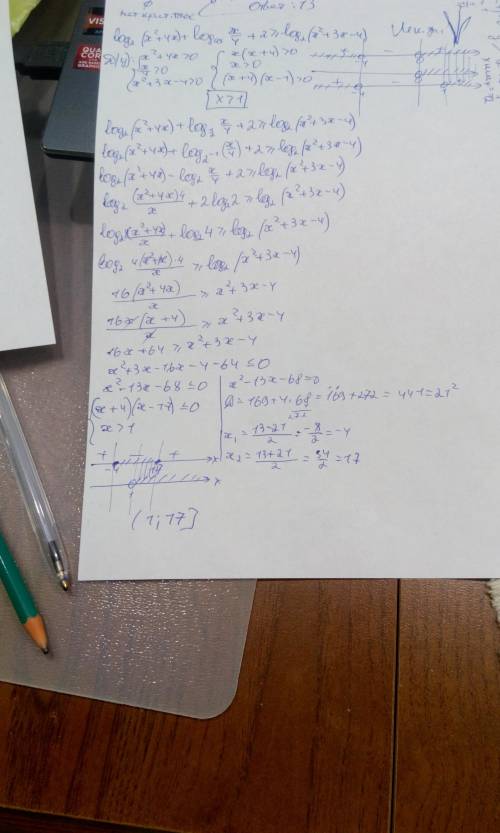 Ответ: 13
log₂(x²+4x)+log₀,₅ x/4 +2≥log₂(x²+3x-4)
{x²+4x>0 {x(x+4)>0
x/4>0 x>0
x²+3x-4>0 (x+4)(x-1)>0
x>1
log₂(x²+4x)+log_½ x/4 +2≥log₂(x²+3x-4)
log₂(x²+4x)+log₂₋₁(x/4)+2≥log₂(x²+3x-4)
log₂(x²+4x)-log₂ x/4 +2≥log₂(x²+3x-4)
log₂ (x²+4x)4/x +2log₂2≥log₂(x²+3x-4)
log₂ 4(x²+4x)/x +log₂4≥log₂(x²+3x-4)
log₂ 4(x²+4x)·4/x ≥log₂(x²+3x-4)
16(x²+4x)/x ≥x²+3x-4
16x(x+4)/x ≥x²+3x-4
16x+64≥x²+3x-4
x²+3x-16x-4-64≤0
x²-13x-68≤0
{(x+4)(x-17)≤0
x>1
x²-13x-68=0
D=169+4·68=169+272=441=21²
272
x₁=13-21/2=-8/2=-4
x₂=13+21/2=34/2=17
+ - +
-4 17 x
1 x
(1;17]
VISI
QUAD
CORE